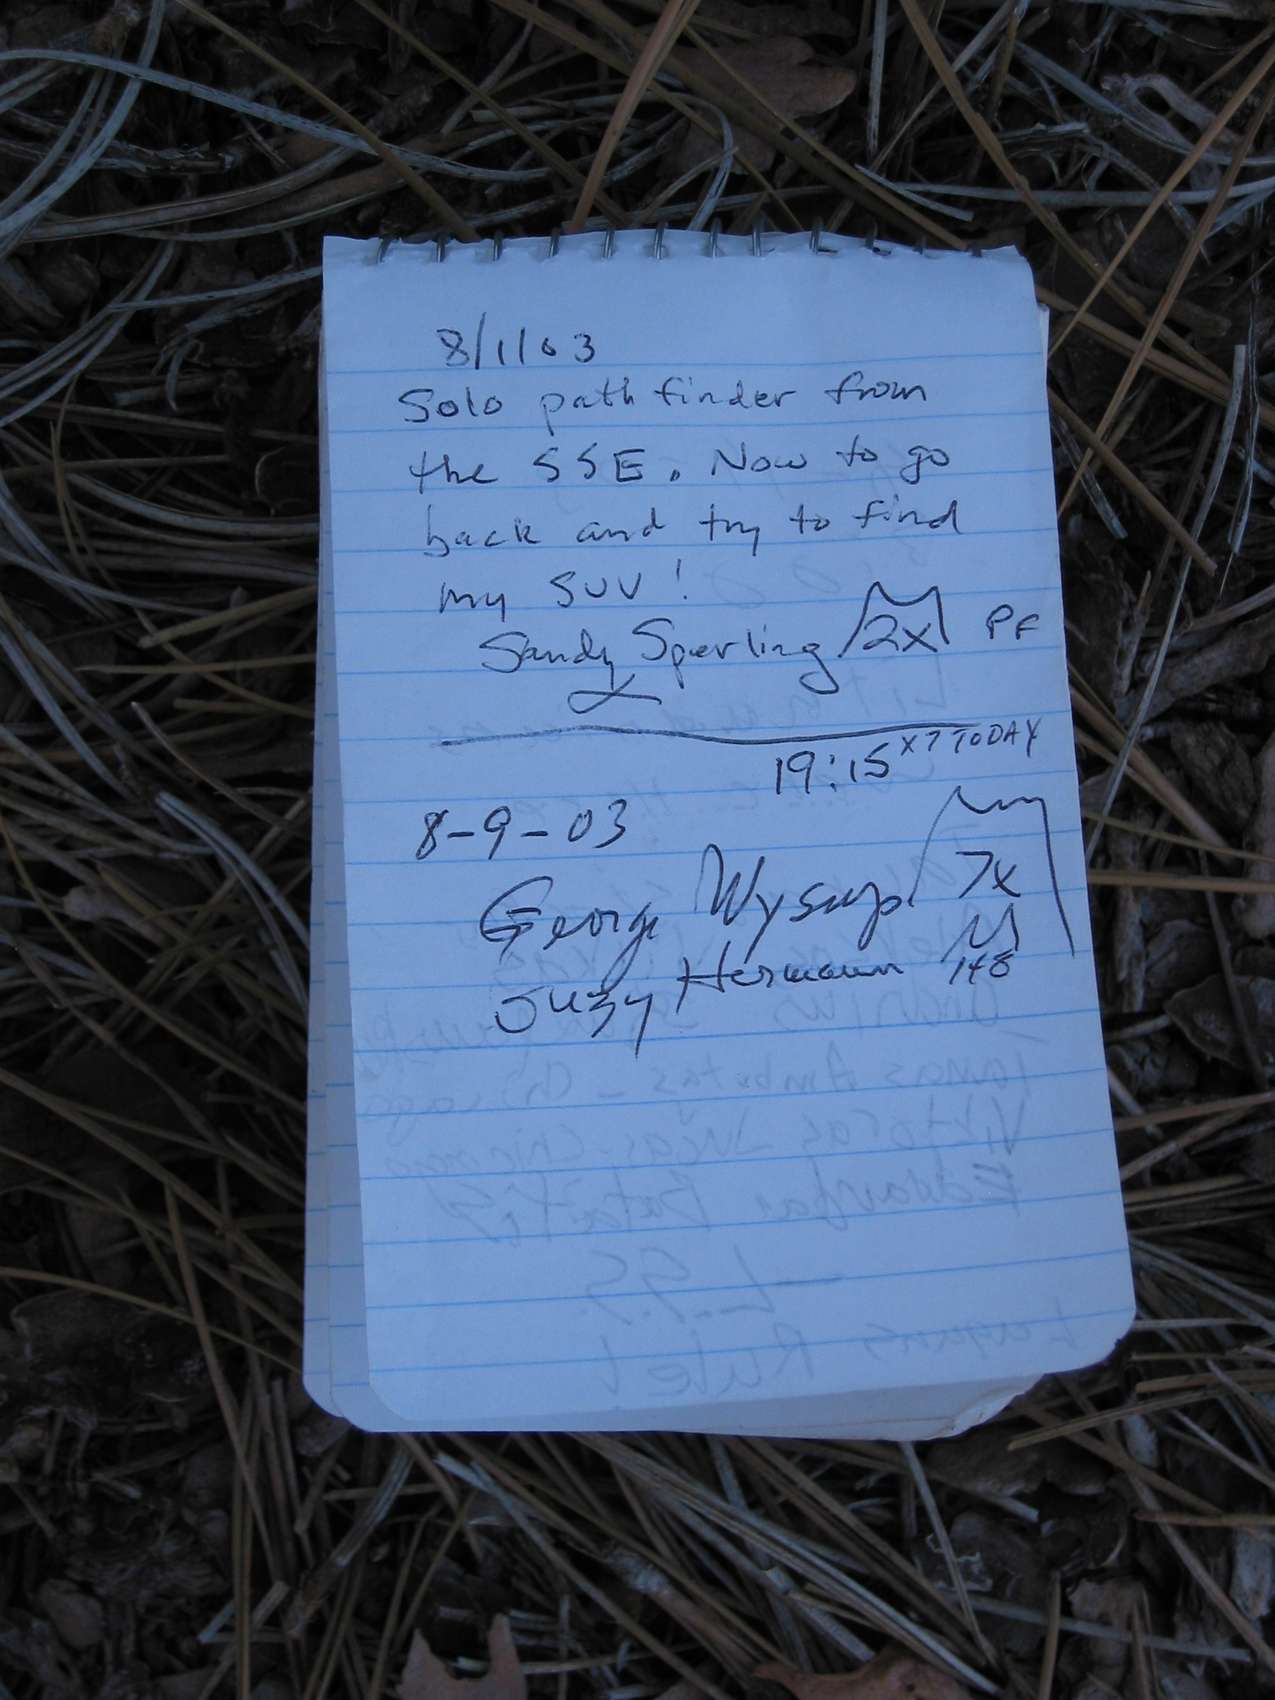 8/1/03
Solo pathfinder from
the SSE. Now to go
back and try to find
my SUV!
Sandy Sperling 2x PF
19:15 x7 TODAY
8-9-03
George Wysup 7x
Suzy Hermann 148